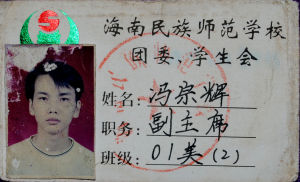 海南民族师范学校
团委、学生会
姓名：冯宗辉
职务：副主席
班级：01美(2)